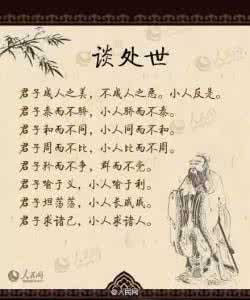 谈处世
君子成人之美，不成人之恶。小人反是。
君子泰而不骄，小人骄而不泰。
君子和而不同，小人同而不和。
君子周而不比，小人比而不周。
君子矜而不争，群而不党。
君子喻于义，小人喻于利。
君子坦荡荡，小人长戚戚。
君子求诸己，小人求诸人。
人民网
@人民网